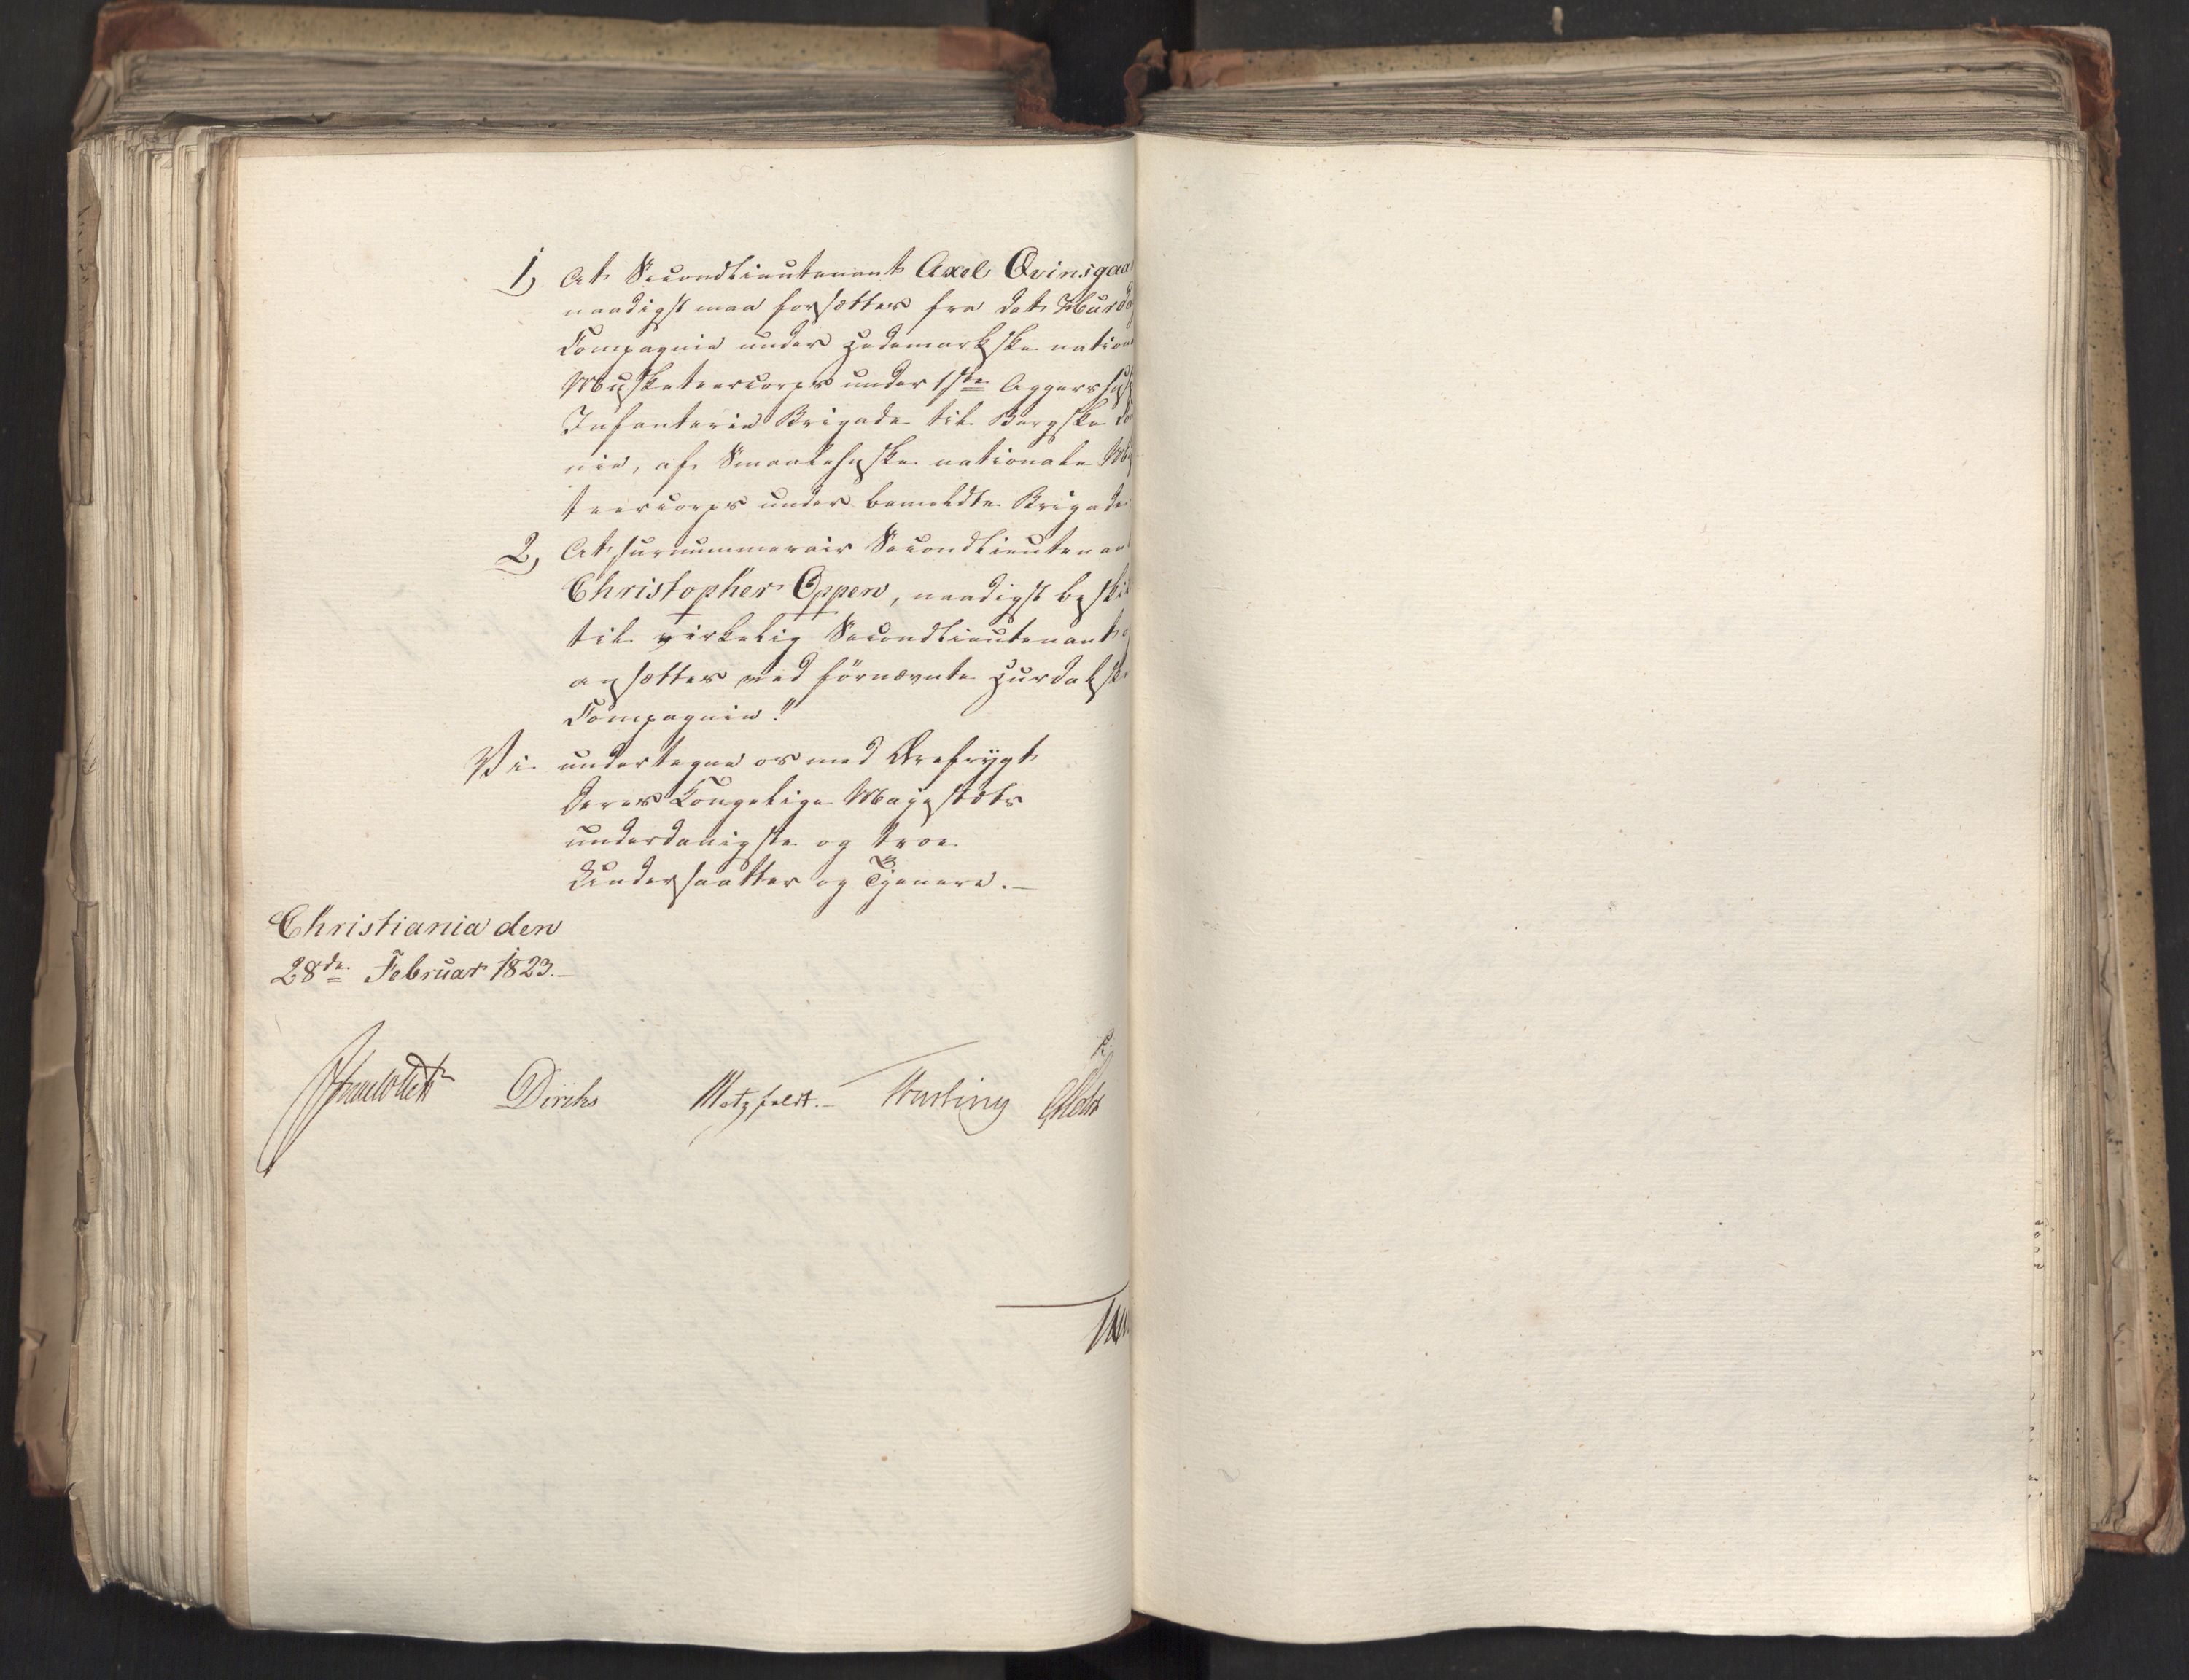 1, At Secondlieutenant Axel Qvinsgaa
naadigst maa forsættes fra det Hurda
Compagnie under Hedemarkske nation
Musketeercorps under 1ste Aggershus
Infanterie Brigade til Bergske Co
nie, af Smaalehnske nationale Mu
teercorps under bemeldte Brigade
2, At surnummerair Secondlieutenan
Christopher Oppen, naadigst beski
til virkelig Secondlieutenant o
ansættes ved fornævnte Hurdalske
Compagnie."
Vi undertegne os med Ærefrygt
Deres Kongelige Majestæts
underdanigste og troe
Undersaatter og Tjenere.-
Christiania den
28de Februar 1823.-
Diriks Motzfeldt.- Krebs